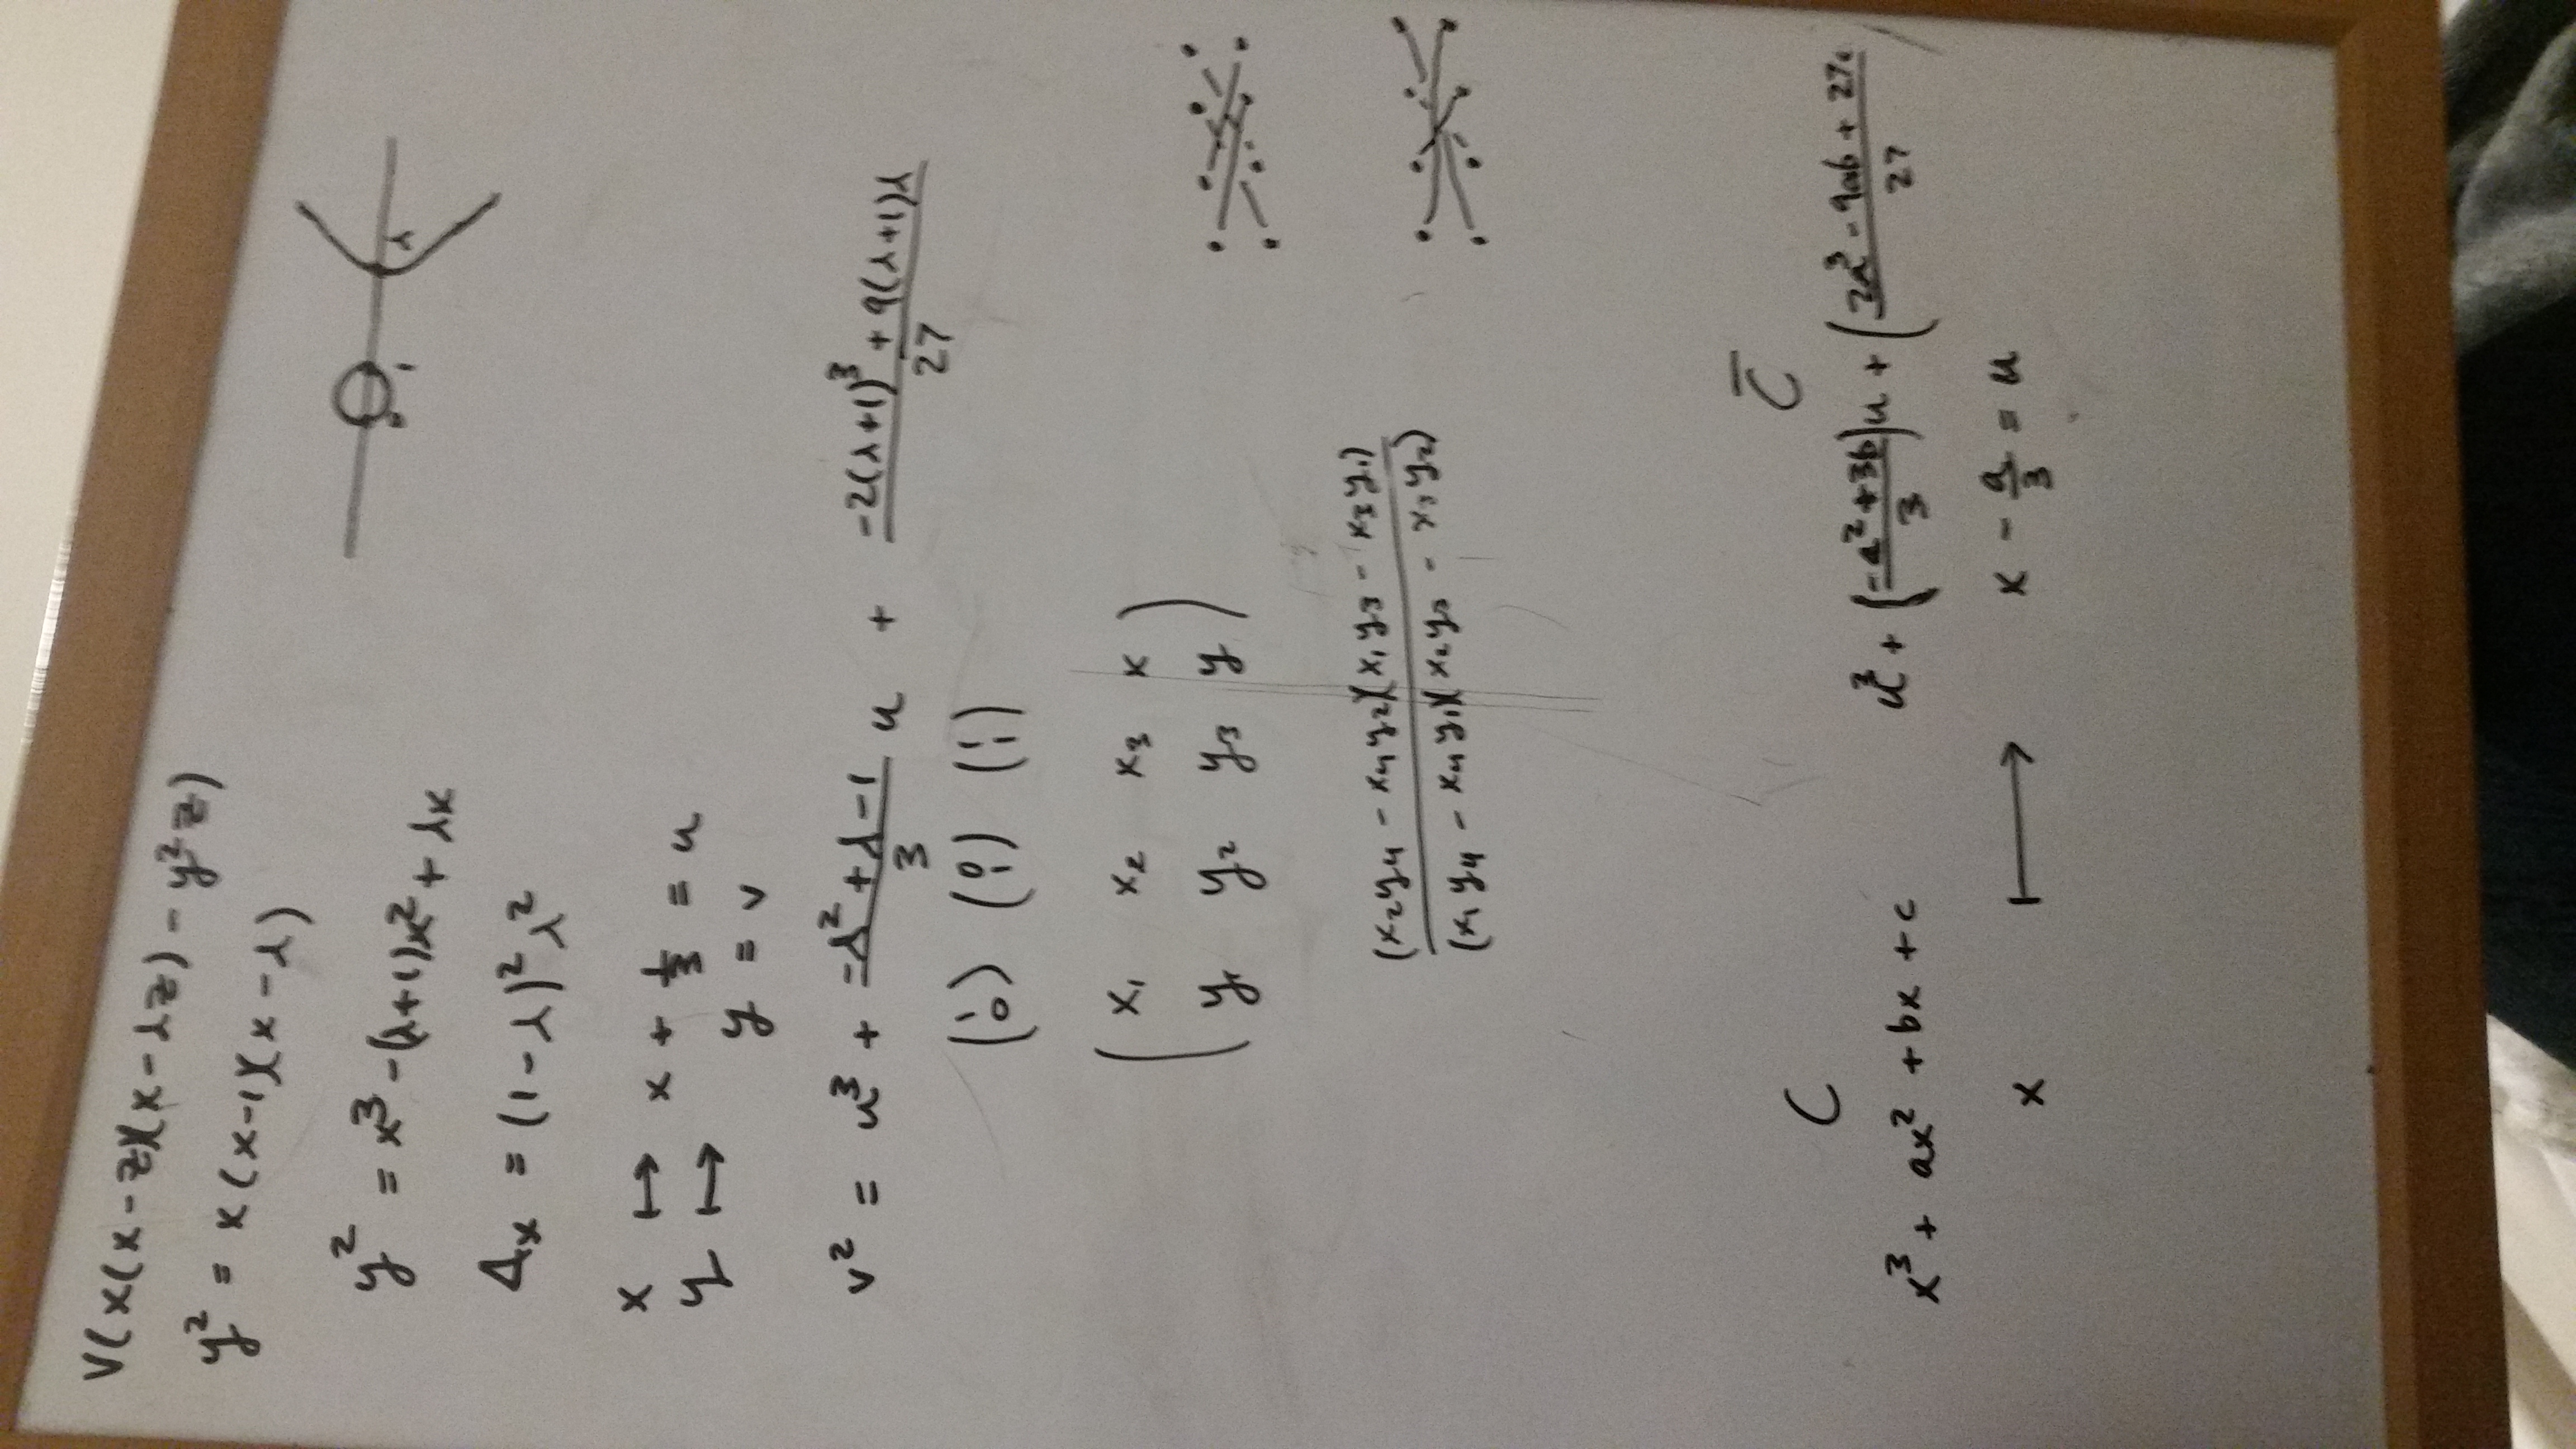 V(x(x-z)(x-λz) - y²z)
y² = x(x-1)(x-λ)
y² = x³ - (λ+1)x² + λx
0 1 λ
Δₓ = (1-λ)²λ²
x ↦ x + 1/3 = u
y ↦ y = v
v² = u³ + (-λ²+λ-1)/3 u + (-2(λ+1)³ + 9(λ+1)λ)/27
(1 0) (0 1) (1 1)
( x₁ x₂ x₃ x
y₁ y₂ y₃ y )
(x₂y₄ - x₄y₂)(x₁y₃ - x₃y₁)
(x₁y₄ - x₄y₁)(x₂y₃ - x₃y₂)
C C̅
x³ + ax² + bx + c u³ + ((-a²+3b)/3)u + ((2a³ - 9ab + 27c)/27)
x ⟼ x - a/3 = u